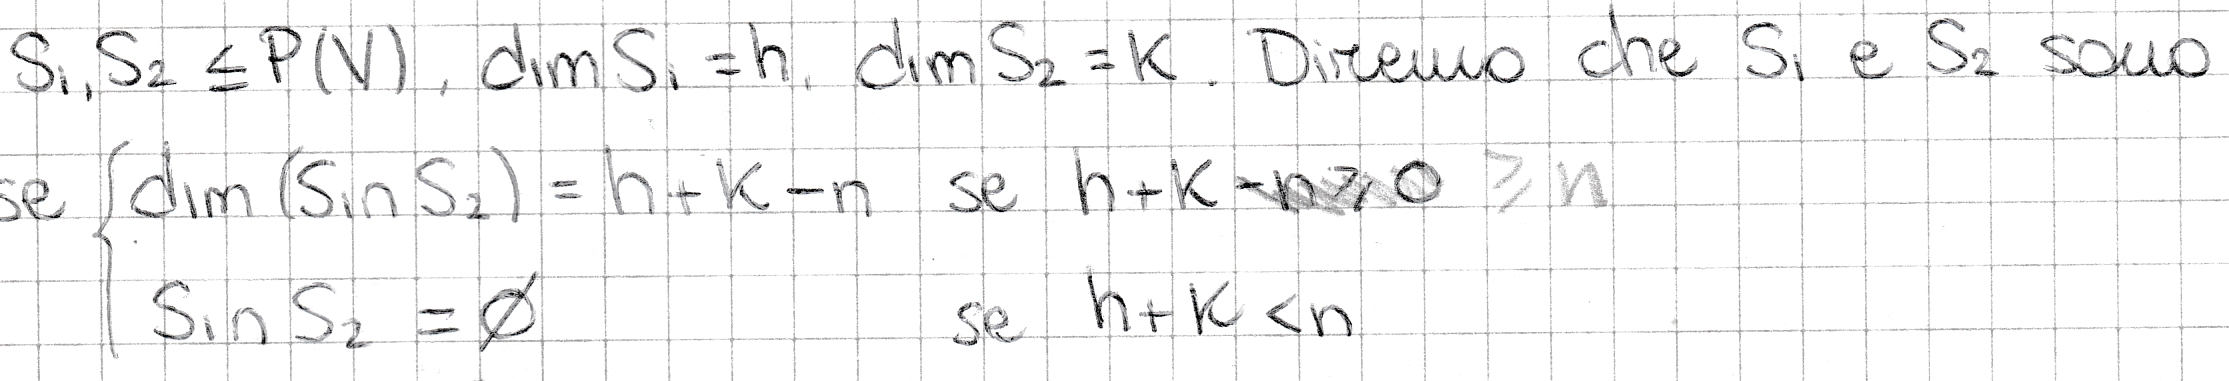 S₁, S₂ ≤ P(V), dim S₁ = h, dim S₂ = K. Diremo che S₁ e S₂ sono
se { dim (S₁ ∩ S₂) = h + K - n se h + K - n ≥ 0 ≥ n
S₁ ∩ S₂ = ∅ se h + K < n